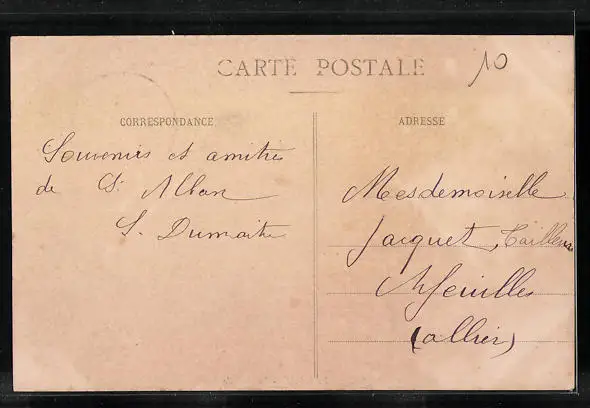 CARTE POSTALE
10
CORRESPONDANCE
Souvenirs et amitiés
de St Alban
S. Dumaite
ADRESSE
Mesdemoiselle
Jacquet, Tailleuse
Arfeuilles
(allier)